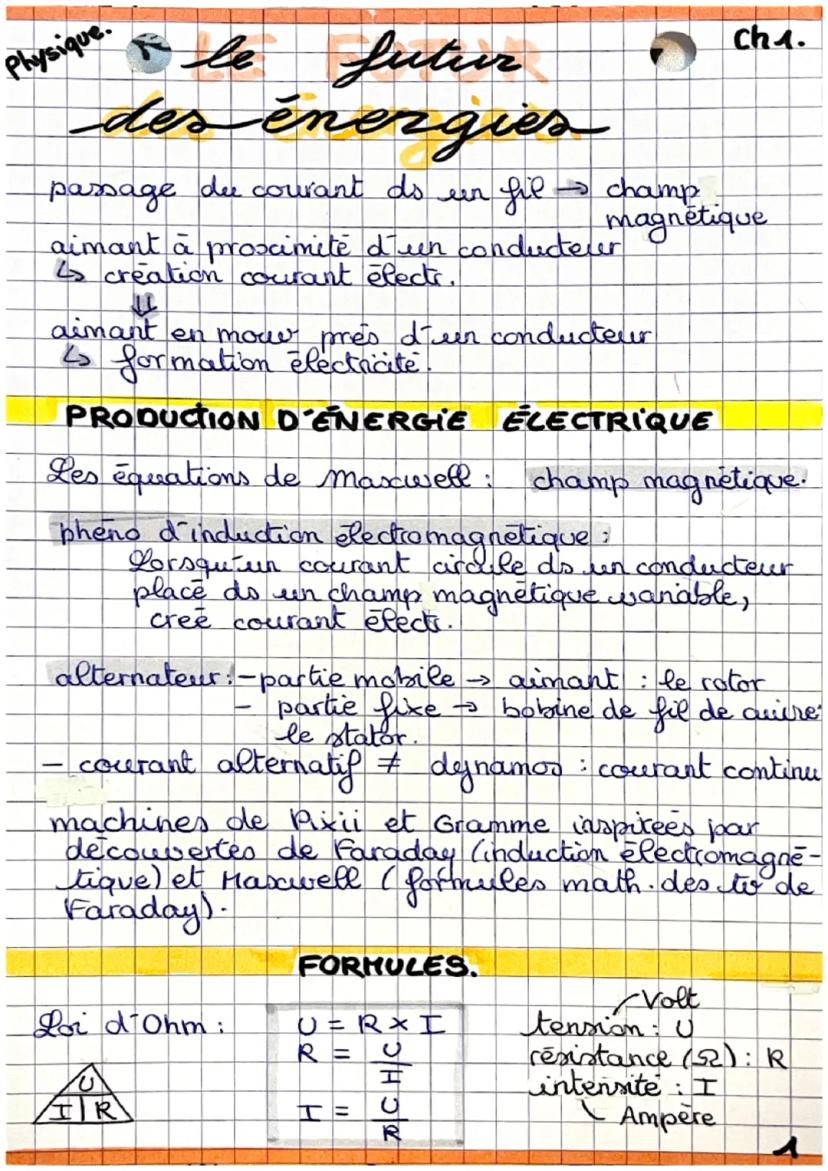 Physique.
Ch 1.
le futur
des énergies
passage du courant ds un fil → champ
magnétique
aimant à proximité d'un conducteur
↳ création courant électr.
⇓
aimant en mouv près d'un conducteur
↳ formation électricité.
PRODUCTION D'ÉNERGIE ÉLECTRIQUE
Les équations de Maxwell : champ magnétique.
phéno d'induction électromagnétique :
Lorsqu'un courant circule ds un conducteur
placé ds un champ magnétique variable,
creé courant électr.
alternateur : - partie mobile → aimant : le rotor
- partie fixe → bobine de fil de cuivre
le stator.
- courant alternatif ≠ dynamos : courant continu
machines de Pixii et Gramme inspireés par
découvertes de Faraday (induction électromagné-
tique) et Maxwell (formules math. des de
Faraday).
FORMULES.
Loi d'Ohm :
U = R x I
R = U / I
I = U / R
U
I | R
Volt
tension : U
résistance (Ω) : R
intensité : I
Ampère
1